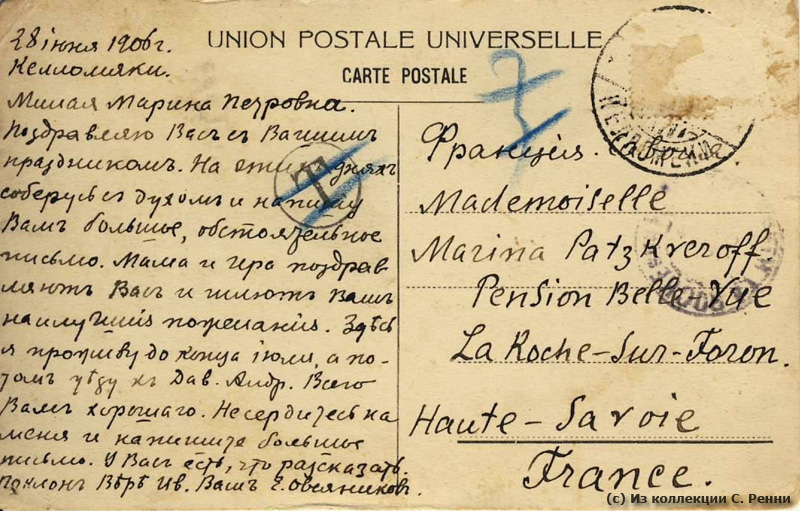 28 іюня 1906 г.
Келломяки.
UNION POSTALE UNIVERSELLE
CARTE POSTALE
Милая Марина Петровна.
Поздравляю Васъ съ Вашимъ
праздникомъ. На этихъ дняхъ
соберусь съ духомъ и напишу
Вамъ большое, обстоятельное
письмо. Мама и Ира поздрав
ляютъ Васъ и шлютъ Вамъ
наилучшія пожеланія. Здѣсь
я проживу до конца іюля, а по-
томъ уѣду къ Дав. Андр. Всего
Вамъ хорошаго. Не сердитесь на
меня и напишите большое
письмо. У Васъ есть, что разсказать.
Поклонъ Вѣрѣ Ив. Вашъ Е. Овсяниковъ.
T
Франція.
Mademoiselle
Marina Patzkveroff.
Pension Belle-Vue
La Roche-Sur-Foron.
Haute-Savoie
France.
(c) Из коллекции С. Ренни